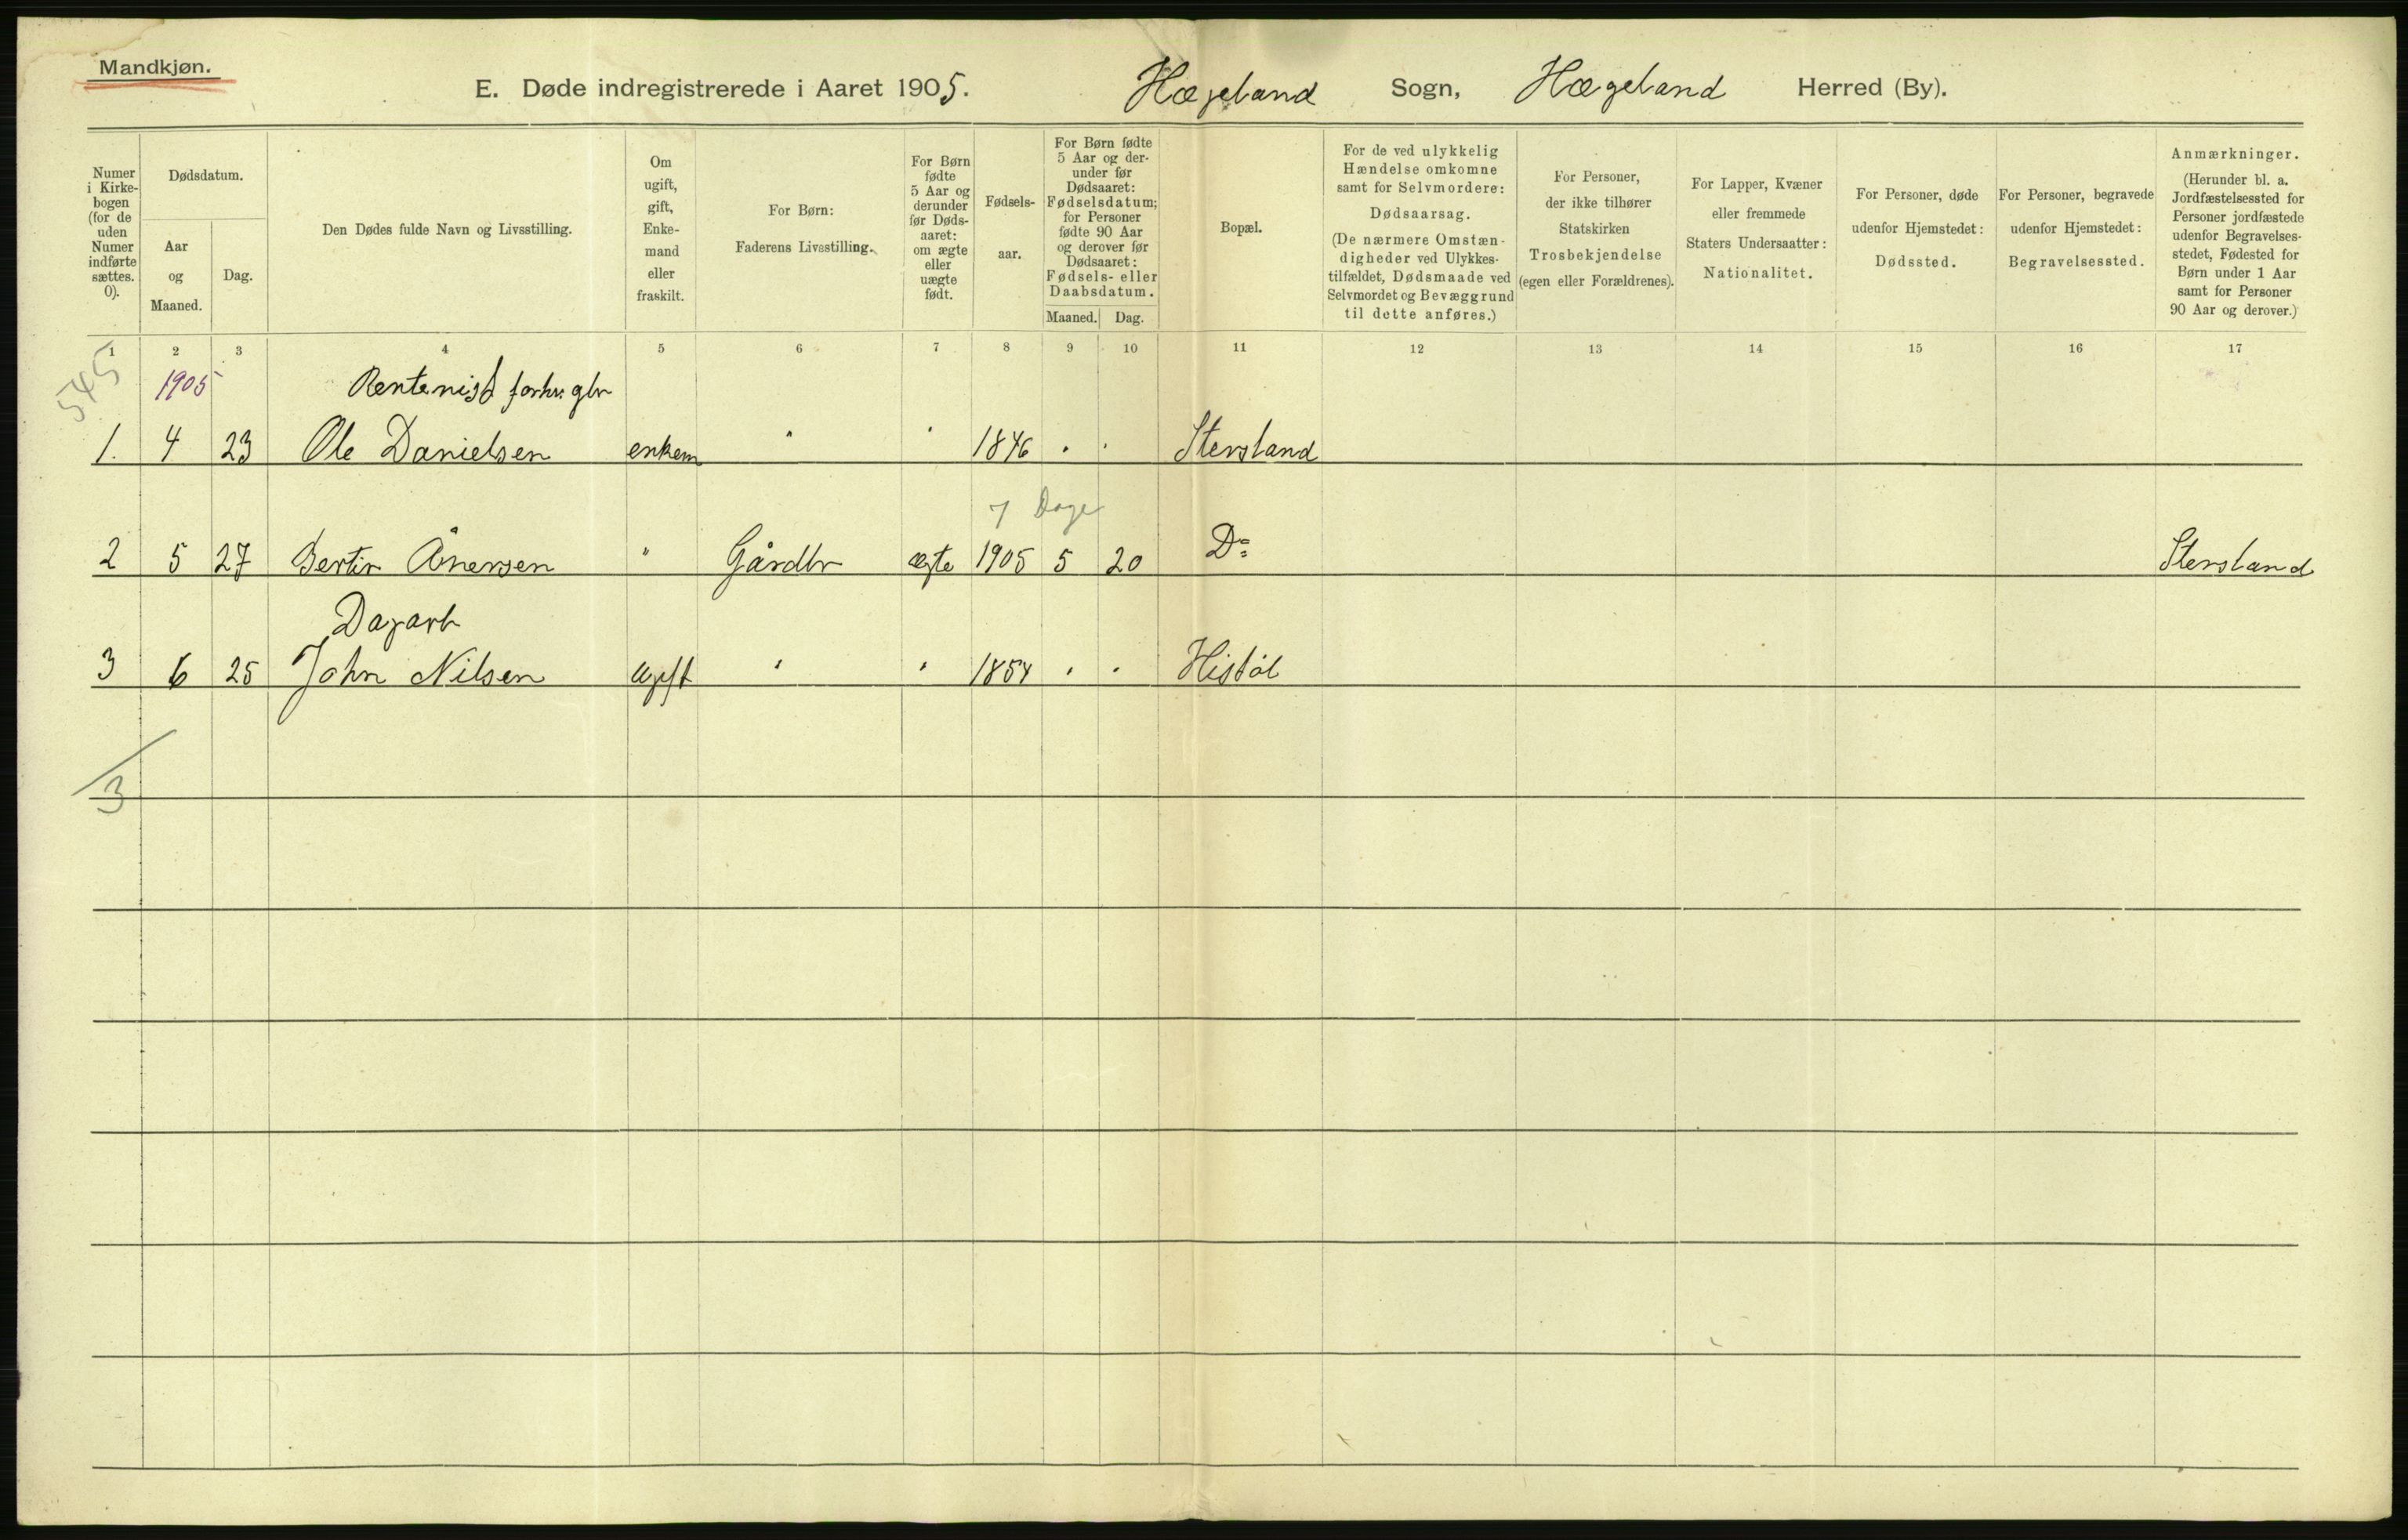 Mandkjøn.
E. Døde indregistrerede i Aaret 1905. Hægeland Sogn, Hægeland Herred (By).
Numer i Kirkebogen (for de uden Numer indførte sættes. 0).
Dødsdatum.
Aar og Maaned.
Dag.
Den Dødes fulde Navn og Livsstilling.
Om ugift, gift, Enkemand eller fraskilt.
For Børn: Faderens Livsstilling.
For Børn fødte 5 Aar og derunder før Dødsaaret: om ægte eller uægte født.
Fødselsaar.
For Børn fødte 5 Aar og derunder før Dødsaaret: Fødselsdatum; for Personer fødte 90 Aar og derover før Dødsaaret: Fødsels- eller Daabsdatum.
Maaned. Dag.
Bopæl.
For de ved ulykkelig Hændelse omkomne samt for Selvmordere: Dødsaarsag. (De nærmere Omstændigheder ved Ulykkestilfældet, Dødsmaade ved Selvmordet og Bevæggrund til dette anføres.)
For Personer, der ikke tilhører Statskirken Trosbekjendelse (egen eller Forældrenes).
For Lapper, Kvæner eller fremmede Staters Undersaatter: Nationalitet.
For Personer, døde udenfor Hjemstedet: Dødssted.
For Personer, begravede udenfor Hjemstedet: Begravelsessted.
Anmærkninger. (Herunder bl. a. Jordfæstelsessted for Personer jordfæstede udenfor Begravelsesstedet, Fødested for Børn under 1 Aar samt for Personer 90 Aar og derover.)
1 2 3 4 5 6 7 8 9 10 11 12 13 14 15 16 17
545
1905 Rentenist forhv. gbr
1. 4 23 Ole Danielsen enkem " " 1846 " " Stersland
7 Dage
2 5 27 Bertin Ånersen " Gårdbr ægte 1905 5 20 Do Stersland
Dagarb
3 6 25 John Nilsen Ugift " " 1854 " " Histøl
3